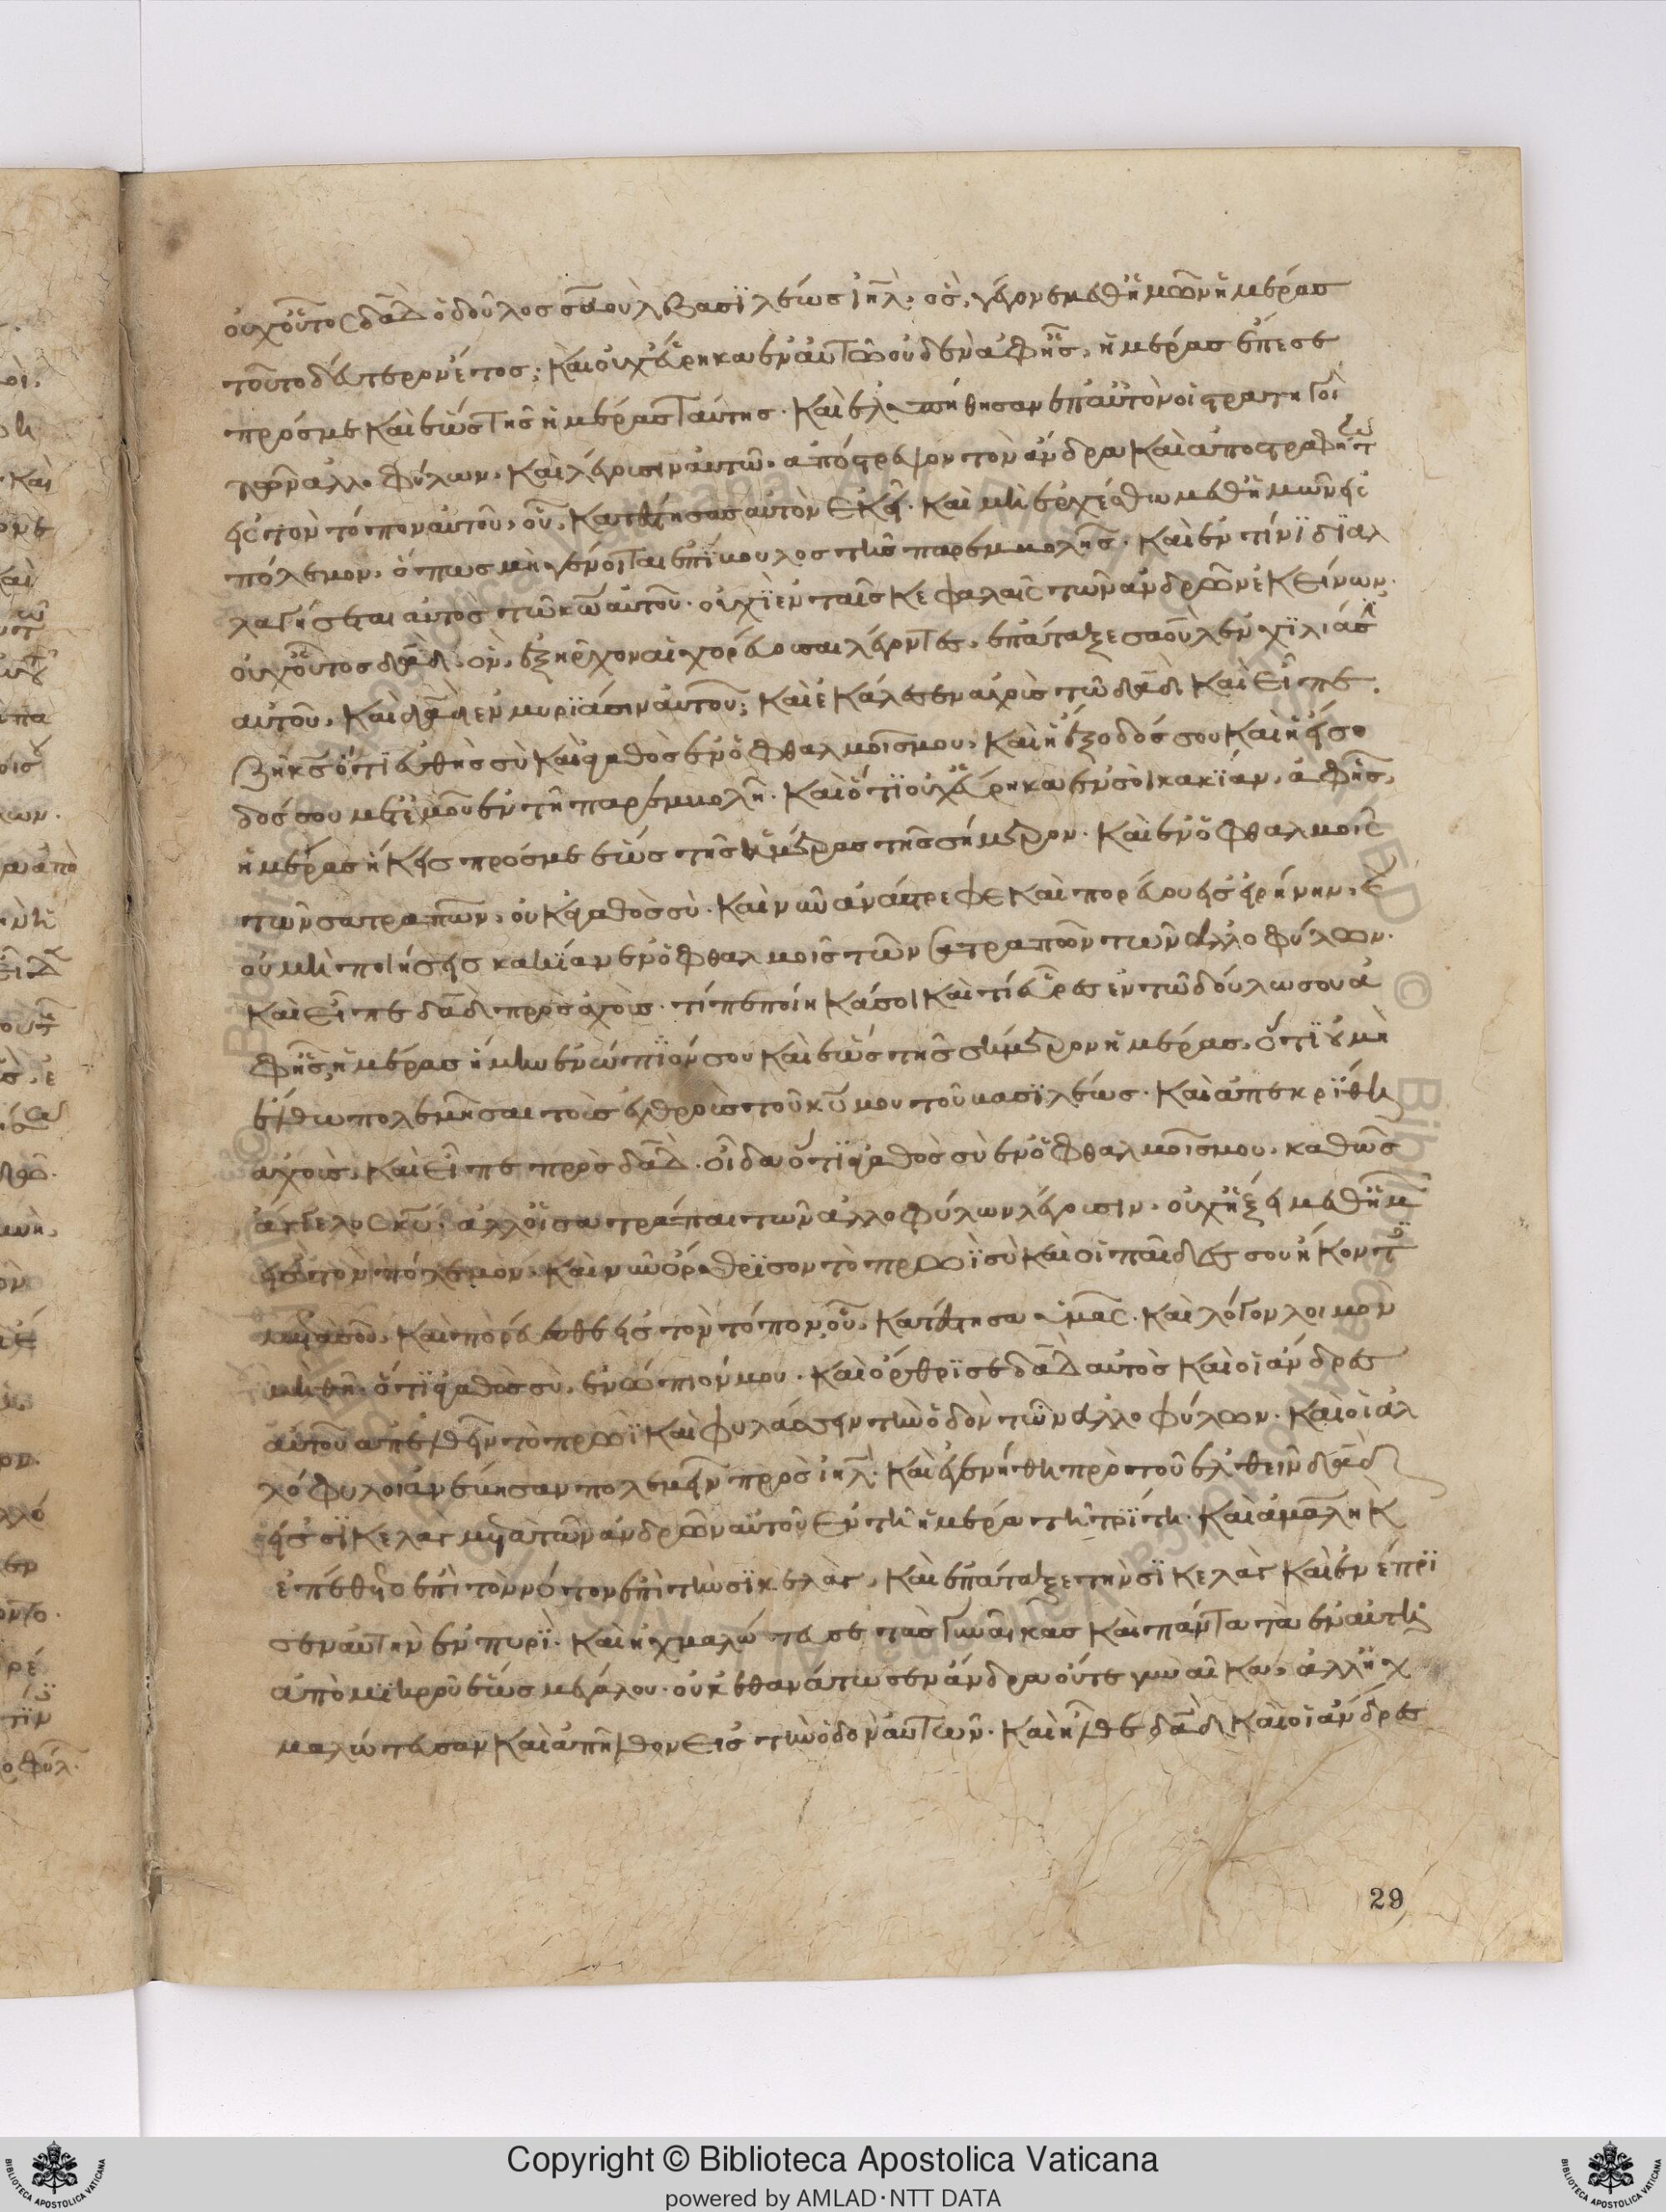 οὐχ οὗτος δᾱδ̄ ὁ δοῦλος σαοὺλ βασϊλέως ἰη̄λ̄. ὃς γέγονε μεθ' ἡμῶν ἡμέρας
τοῦτο δεύτερον ἔτος; καὶ οὐχ εὕρηκα ἐν αὐτῶ οὐδὲν ἀφ' ἧς ἡμέρας ἔπεσε
πρός με καὶ ἕως τῆς ἡμέρας ταύτης. καὶ ἐλυπήθησαν ἐπ' αὐτὸν οἱ στρατηγοὶ
τῶν ἀλλοφύλων. καὶ λέγουσιν αὐτῶ. ἀπόστρεψον τὸν ἄνδρα καὶ ἀποστραφήτω
εἰς τὸν τόπον αὐτοῦ. οὗ κατέστησας αὐτὸν ἐκεῖ. καὶ μὴ ἐρχέσθω μεθ' ἡμῶν εἰς
πόλεμον. ὅπως μὴ γένοιται ἐπίβουλος τῆς παρεμβολῆς. καὶ ἐν τίνϊ δϊαλ
λαγήσεται αὐτὸς τῶ κω̄ αὐτοῦ. οὐχὶ ἐν ταῖς κεφαλαῖς τῶν ἀνδρῶν ἐκείνων;
οὐχ οὗτος δᾱδ̄ ὃν ἐξῆρχον αἱ χορεύουσαι λέγοντες. ἐπάταξε σαοὺλ ἐν χϊλιάσϊ
αὐτοῦ. καὶ δᾱδ̄ ἐν μυρϊάσιν αὐτοῦ; καὶ ἐκάλεσεν ἀγχοὺς τὸν δᾱδ̄ καὶ εἶπε.
ζῆ κ̄ς ὅτϊ εὐθὴς σὺ καὶ ἀγαθὸς ἐν ὀφθαλμοῖς μου. καὶ ἡ ἔξοδός σου καὶ ἡ εἴσο
δός σου μετ' ἐμοῦ ἐν τῆ παρεμβολῆ. καὶ ὅτϊ οὐχ εὕρηκα ἐν σοὶ κακϊάν. ἀφ' ἧς
ἡμέρας ἥκεις πρός με ἕως τῆς ἡμέρας τῆς σήμερον. καὶ ἐν ὀφθαλμοῖς
τῶν σατραπῶν. οὐκ ἀγαθὸς σύ. καὶ νῦν ἀνάστρεφε καὶ πορεύου εἰς εἰρήνην. καὶ
οὐ μὴ ποιήσεις κακϊάν ἐν ὀφθαλμοῖς τῶν σατραπῶν τῶν ἀλλοφύλων.
καὶ εἶπε δᾱδ̄ πρὸς ἀγχούς. τί πεποίηκά σοι καὶ τί εὗρες ἐν τῶ δούλω σου ἀ
φ' ἧς ἡμέρας ἤμην ἐνώπϊόν σου καὶ ἕως τῆς σήμερον ἡμέρας. ὅτϊ οὐ μὴ
ἔλθω πολεμῆσαι τοῖς ἐχθροῖς τοῦ κ̄ῡ μου τοῦ βασϊλέως. καὶ ἀπεκρίθη
ἀγχοὺς καὶ εἶπε πρὸς δᾱδ̄. οἶδα ὅτϊ ἀγαθὸς σὺ ἐν ὀφθαλμοῖς μου. καθὼς
ἄγγελος κ̄ῡ. ἀλλ' οἱ σατράπαι τῶν ἀλλοφύλων λέγουσιν. οὐχ ἥξει μεθ' ἡμῶν
εἰς τὸν πόλεμον. καὶ νῦν ὄρθρϊσον τὸ πρωῒ σὺ καὶ οἱ παῖδες σου ἥκοντες
μετὰ σοῦ. καὶ πορεύεσθε εἰς τὸν τόπον οὗ κατέστησα ὑμᾶς. καὶ λόγον λοιμὸν
μὴ θῆς. ὅτϊ ἀγαθὸς σὺ ἐνώπιόν μου. καὶ ὤρθρϊσε δᾱδ̄ αὐτὸς καὶ οἱ ἄνδρες
αὐτοῦ ἀπελθεῖν τὸ πρωῒ καὶ φυλάσσειν τὴν ὁδὸν τῶν ἀλλοφύλων. καὶ οἱ ἀλ
λόφυλοι ἀνέβησαν πολεμεῖν πρὸς ἰη̄λ̄. καὶ ἐγενήθη πρὸ τοῦ ἐλθεῖν δᾱδ̄
εἰς σϊκελὰγ μετὰ τῶν ἀνδρῶν αὐτοῦ ἐν τῆ ἡμέρα τῆ τρίτη. καὶ ἀμαλὴκ
ἐπέθετο ἐπὶ τὸν νότον ἐπὶ τὴν σϊκελὰγ. καὶ ἐπάταξε τὴν σϊκελὰγ καὶ ἐνέπρϊ
σεν αὐτὴν ἐν πυρϊ. καὶ ἠχμαλώτευσε τὰς γυναῖκας καὶ πάντα τὰ ἐν αὐτῆ
ἀπὸ μϊκροῦ ἕως μεγάλου. οὐκ ἐθανάτωσεν ἄνδρα οὔτε γυναῖκα. ἀλλ' ἠχ
μαλώτευσαν καὶ ἀπῆλθον εἰς τὴν ὁδὸν αὐτῶν. καὶ ἦλθε δᾱδ̄ καὶ οἱ ἄνδρες
29
© Biblioteca Apostolica Vaticana
Copyright © Biblioteca Apostolica Vaticana
powered by AMLAD·NTT DATA